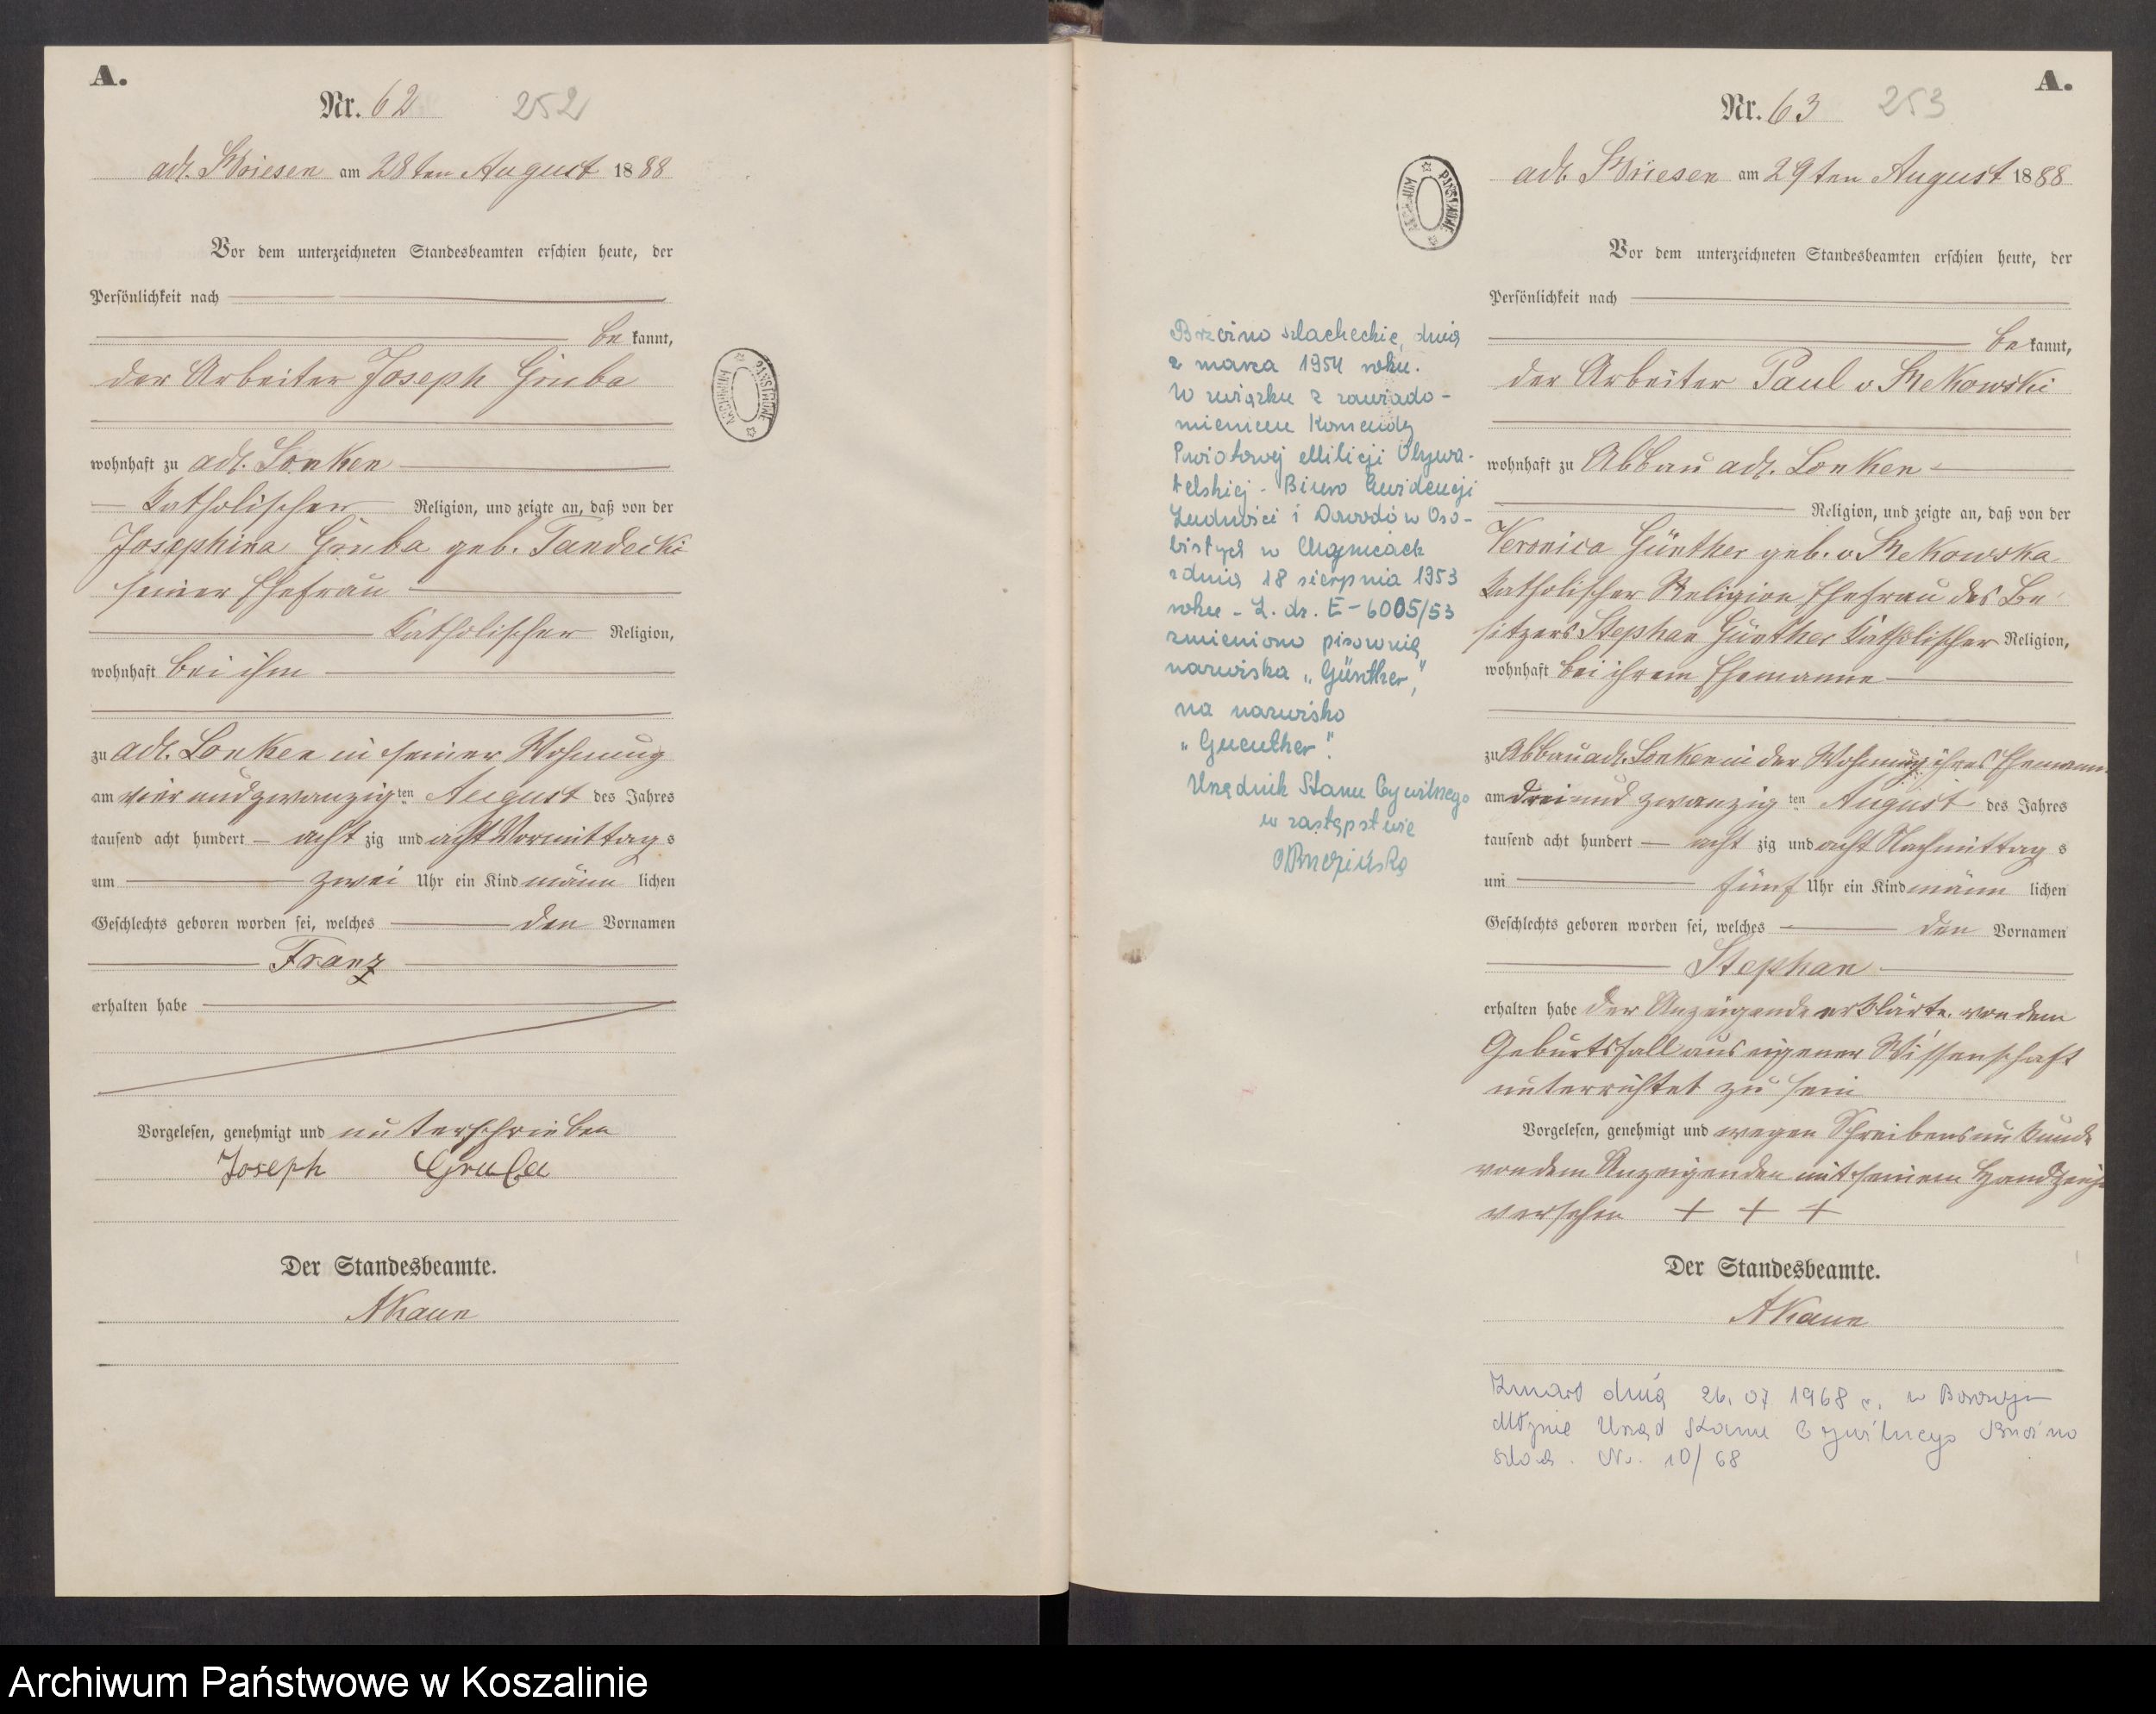 A.
Nr. 62 252
adl. Briesen am 28ten August 1888
Vor dem unterzeichneten Standesbeamten erschien heute, der
Persönlichkeit nach
be kannt,
der Arbeiter Joseph Gruba
wohnhaft zu adl. Lonken
katholischer Religion, und zeigte an, daß von der
Josephina Gruba geb. Tandecki
seiner Ehefrau
katholischer Religion,
wohnhaft bei ihm
zu adl. Lonken in seiner Wohnung
am vier und zwanzig ten August des Jahres
tausend acht hundert acht zig und acht Vormittag s
um zwei Uhr ein Kind männ lichen
Geschlechts geboren worden sei, welches den Vornamen
Franz
erhalten habe
Vorgelesen, genehmigt und unterschrieben
Joseph Gruba
Der Standesbeamte.
AKaun
ARCHIWUM PAŃSTWOWE
A.
Nr. 63 253
adl. Briesen am 29ten August 1888
Vor dem unterzeichneten Standesbeamten erschien heute, der
Persönlichkeit nach
be kannt,
der Arbeiter Paul v Mekowski
wohnhaft zu Abbau adl. Lonken
Religion, und zeigte an, daß von der
Veronica Günther geb. v Mekowska
katholischer Religion Ehefrau des Be
sitzers Stephan Günther katholischer Religion,
wohnhaft bei ihrem Ehemanne
zu Abbau adl. Lonken in der Wohnung ihres Ehemann
am drei und zwanzig ten August des Jahres
tausend acht hundert acht zig und acht Nachmittag s
um fünf Uhr ein Kind männ lichen
Geschlechts geboren worden sei, welches den Vornamen
Stephan
erhalten habe der Anzeigende erklärte, von dem
Geburtsfall aus eigener Wissenschaft
unterrichtet zu sein
Vorgelesen, genehmigt und wegen Schreibensunkunde
von dem Anzeigenden mit seinem Handzeich
versehen + + +
Der Standesbeamte.
AKaun
Zmarł dnia 26.07 1968 r. w Borowym
Młynie Urząd Stanu Cywilnego Brzeźno
szlach. Nr. 10/68
ARCHIWUM PAŃSTWOWE
Brzeźno szlacheckie, dnia
2 marca 1954 roku.
W związku z zawiado-
mieniem Komendy
Powiatowej Milicji Obywa-
telskiej - Biuro Ewidencji
Ludności i Dowodów Oso-
bistych w Chojnicach
z dnia 18 sierpnia 1953
roku - L. dz. E-6005/53
zmieniono pisownię
nazwiska "Günther,"
na nazwisko
"Guenther".
Urzędnik Stanu Cywilnego
w zastępstwie
Archiwum Państwowe w Koszalinie